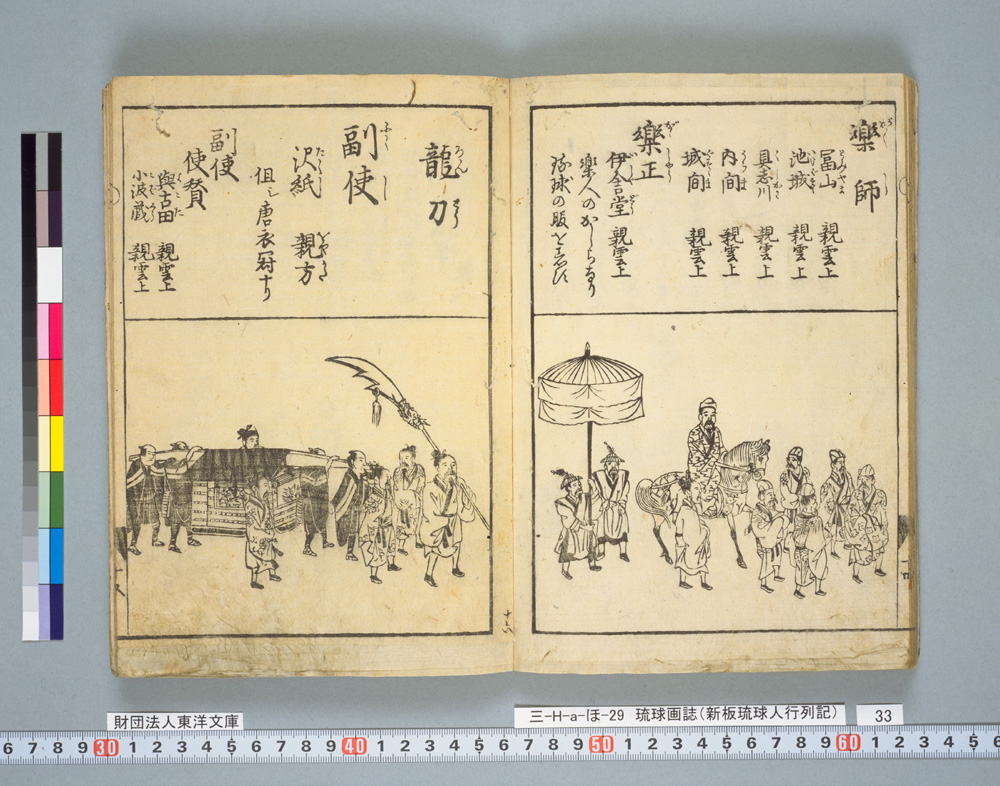 樂師
冨山 親雲上
池城 親雲上
具志川 親雲上
内間 親雲上
城間 親雲上
樂正
伊舎堂 親雲上
樂人のかしらなり
琉球の服を着す
龍刀
副使
沢紙 親方
但シ唐衣冠ナリ
副使
使賛
與古田 親雲上
小波蔵 親雲上
財団法人東洋文庫
三-H-a-ほ-29 琉球画誌(新板琉球人行列記)
33
6 7 8 9 30 1 2 3 4 5 6 7 8 9 40 1 2 3 4 5 6 7 8 9 50 1 2 3 4 5 6 7 8 9 60 1 2 3 4 5 6